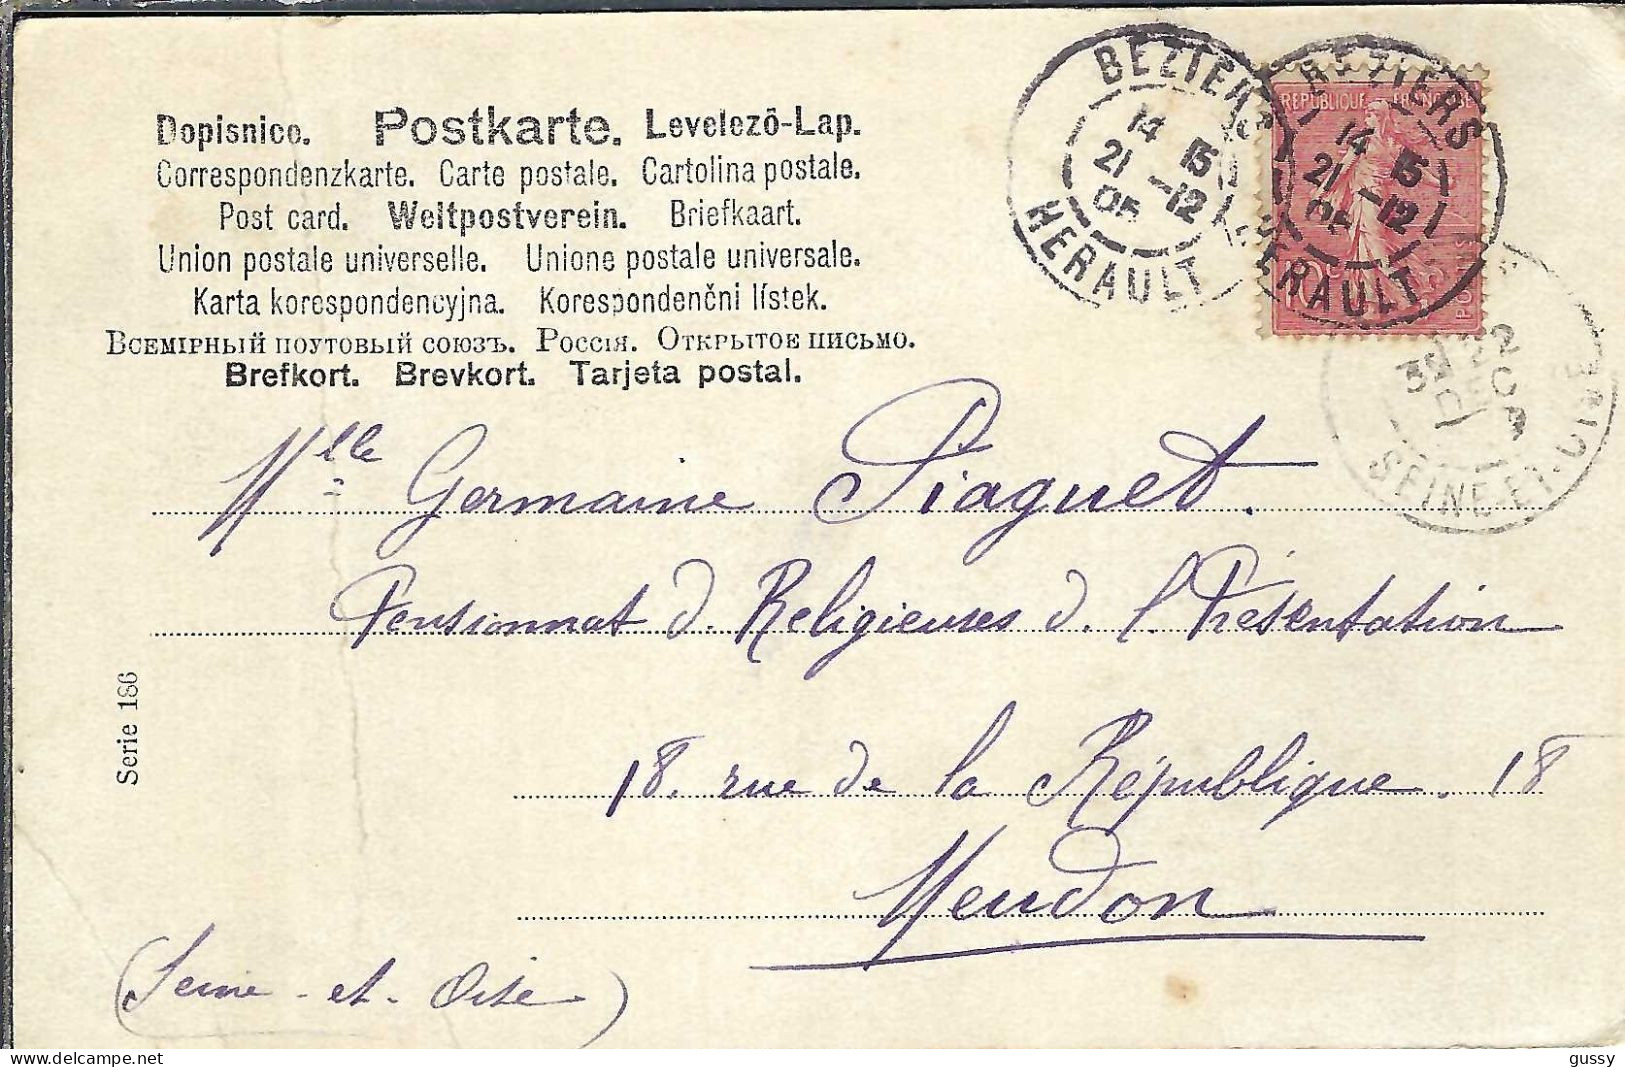 Dopisnico. Postkarte. Levelezö-Lap.
Correspondenzkarte. Carte postale. Cartolina postale.
Post card. Weltpostverein. Briefkaart.
Union postale universelle. Unione postale universale.
Karta korespondencyjna. Korespondenční lístek.
Всемірный поутовый союзъ. Россія. Открытое письмо.
Brefkort. Brevkort. Tarjeta postal.
BEZIERS
14 15
21 -12
05
HERAULT
BEZIERS
14 15
21 -12
05
HERAULT
REPUBLIQUE FRANÇAISE
10c
22
DEC
SEINE-ET-OISE
Mlle Germaine Piaguet.
Pensionnat d. Religieuses d. l. Présentation
18. rue de la République. 18
Meudon
(Seine-et-Oise)
Serie 186
delcampe.net
gussy